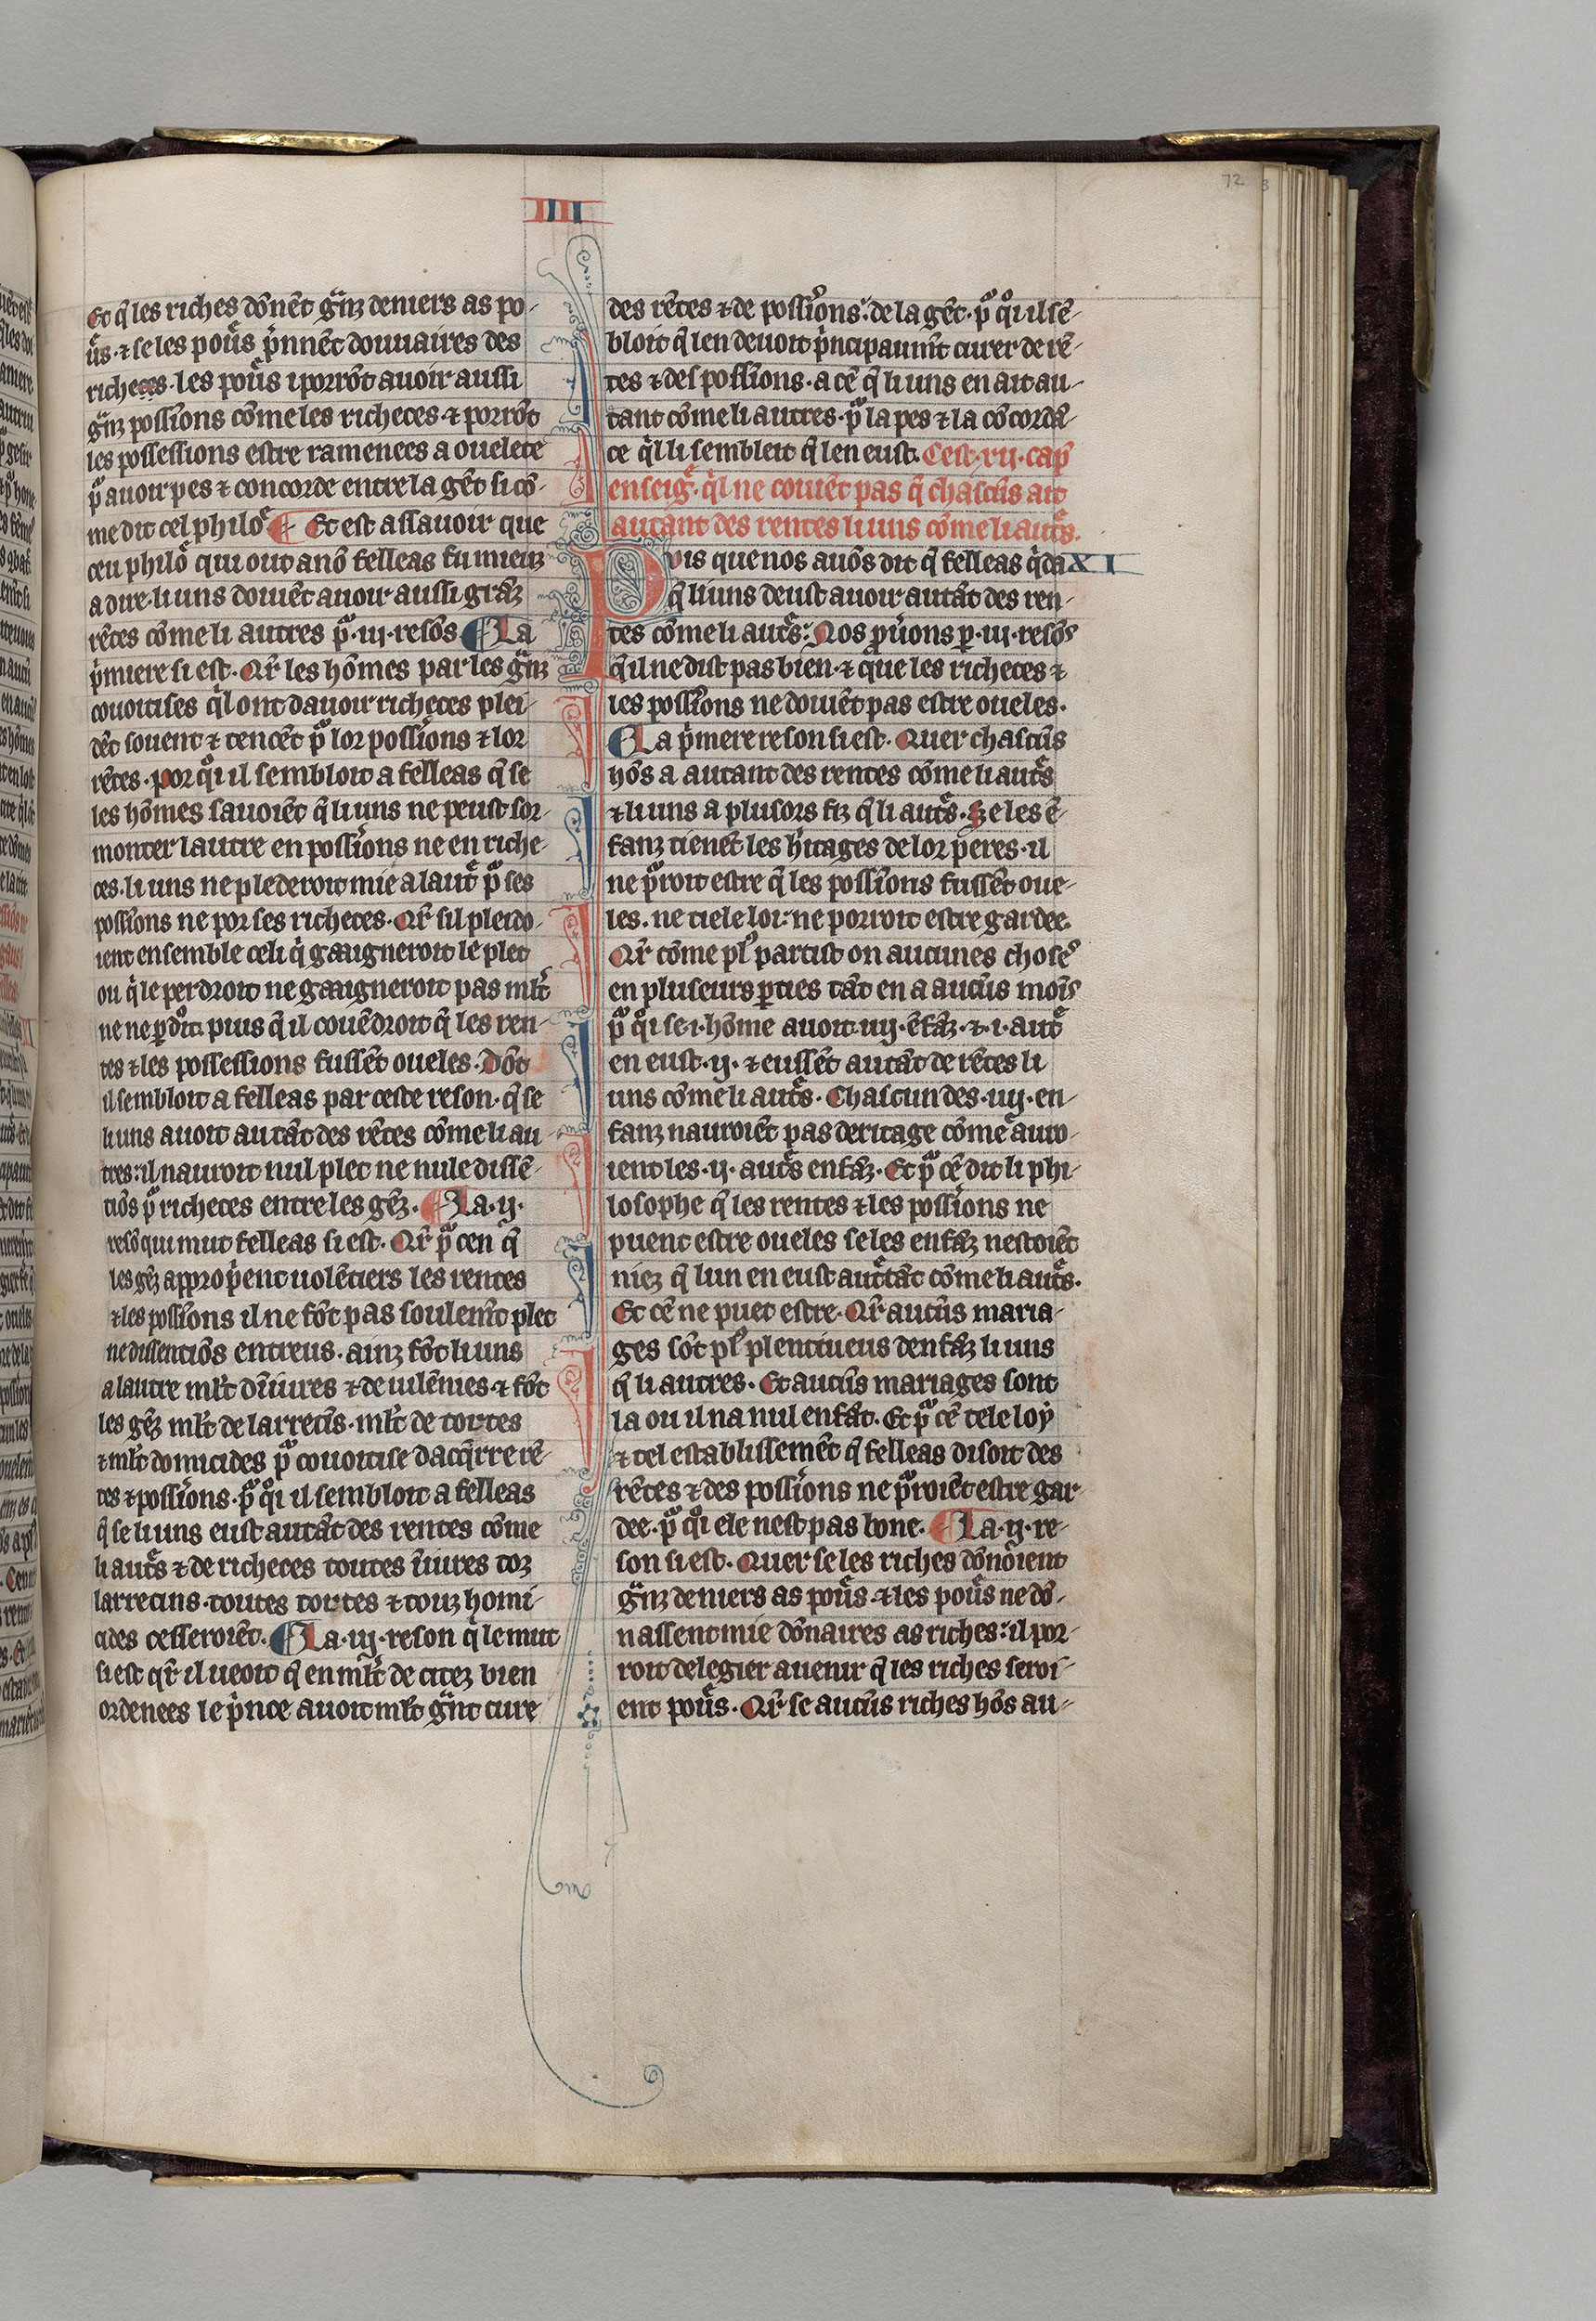 72
IIII
Et q̄ les riches dōnēt gͣnz deniers as po-
ůs · ⁊ se les poůs p̍nnēt douuaires des
richeces · les poůs i porrōt auoir aussi
gͣnz possīons cōme les richeces · ⁊ porrōt
les possessions estre ramenees a ouelete
p̄ auoir pes ⁊ concorde entre la gēt si cō-
me dit cel philo᷒ ¶ Et est assauoir que
ceu philo᷒ qui out anō felleas fu mieuz
a dire · li uns doiuēt auoir aussi grāz
rētes cōme li autres p̄ · iii · resōs ¶ La
p̍miere si est · Qr̄ les hōmes par les gͣnz
couoitises q̍l ont dauoir richeces plei-
dēt souent ⁊ tencēt p̄ lor possīons ⁊ lor
rētes · por qͦi il sembloit a felleas q̄ se
les hōmes sauoiēt q̄ li uns ne peust sor-
monter lautre en possīons ne en riche-
ces · li uns ne plederoit mie a laut̄ p̄ ses
possīons ne por ses richeces · Qr̄ sil pleido-
ient ensemble celi q̍ gaaigneroit le plet
ou q̍ le perdroit ne gaaigneroit pas ml̄t
ne ne ꝑdͦit · puis q̄ il couēdroit q̄ les ren-
tes ⁊ les possessions fussēt oueles · Dōt
il sembloit a felleas par ceste reson · q̄ se
li uns auoit autāt des rētes cōme li au-
tres : il nauroit nul plet ne nule dissē-
tiōs p̄ richeces entre les gēz · ¶ La · ii ·
resō qui mut felleas si est · Qr̄ p̄ cen q̄
les gēz approp̍ent uolētiers les rentes
⁊ les possīons il ne fōt pas soulem̄t plet
ne dissentiōs entreus · ainz fōt li uns
a lautre ml̄t dīiures ⁊ de uilēnies · ⁊ fōt
les gēz ml̄t de larrecīs · ml̄t de tortes
⁊ ml̄t domicides p̄ couoitise dacq̄rre rē-
tes ⁊ possīons · p̄ qͦi il sembloit a felleas
q̄ se li uns eust autāt des rentes cōme
li aut᷒s ⁊ de richeces toutes īiures toz
larrecins · toutes tortes ⁊ touz homi-
cides cesseroiēt · ¶ La · iii · reson q̄ le mut
si est qr̄ il ueoit q̄ en ml̄t de citez bien
ordenees le p̍nce auoit ml̄t gͣnt cure
des rētes ⁊ de possīons : de la gēt · p̄ qͦi il sē-
bloit q̄ len deuoit p̍ncipaum̄t curer de rē-
tes ⁊ des possīons · a cē q̄ li uns en ait au-
tant cōme li autres · p̄ la pes ⁊ la cōcordā-
ce q̍l li sembleit q̄ len eust · Cest · xii · cap̄
enseig᷒ · q̍l ne couiēt pas q̄ chascūs ait
autant des rentes li uns cōme li aut᷒s ·
Puis que nos auōs dit q̄ felleas q̍da XI
q̄ li uns deust auoir autāt des ren-
tes cōme li aut᷒s : Nos ꝓuōns ꝑ · iii · resōs
q̄ il ne dist pas bien · ⁊ que les richeces ⁊
les possīons ne doiuēt pas estre oueles ·
¶ La p̍mere reson si est · Quer chascūs
hōs a autant des rentes cōme li aut᷒s
⁊ li uns a plusors fiz q̄ li aut᷒s · Se les ē-
fanz tienēt les h̍itages de lor peres · il
ne p̄roit estre q̄ les possīons fussēt oue-
les · ne tiele loi : ne porroit estre gardee ·
Qr̄ cōme pl᷒ partist on aucunes choses
en pluseurs ꝑties tāt en a aucūs moīs
p̄ qͦi se · i · hōme auoit · iiii · ēfāz · ⁊ · i · aut᷒
en eust · ii · ⁊ eussēt autāt de rētes li
uns cōme li aut᷒s · Chascun des · iiii · en-
fanz nauroiēt pas deritage cōme auro-
ient les · ii · aut᷒s enfāz · Et p̄ cē dit li phi-
losophe q̄ les rentes ⁊ les possīons ne
puent estre oueles se les enfāz nestoiēt
niez q̄ lun en eust autāt cōme li aut᷒s ·
Et cē ne puet estre · Qr̄ aucūs maria-
ges sōt pl᷒ plentiueus denfāz li uns
q̄ li autres · Et aucūs mariages sont
la ou il na nul enfāt · Et p̄ cē tele loy
⁊ tel establissemēt q̄ felleas disoit des
rētes ⁊ des possīons ne p̄roiēt estre gar-
dee · p̄ qͦi ele nest pas bone · ¶ La · ii · re-
son si est · Quer se les riches dōnoient
gͣnz deniers as poůs · ⁊ les poůs ne dō-
nassent mie dōnaires as riches : il por-
roit de legier auenir q̄ les riches seroi-
ent poůs · Qr̄ se aucūs riches hōs au-